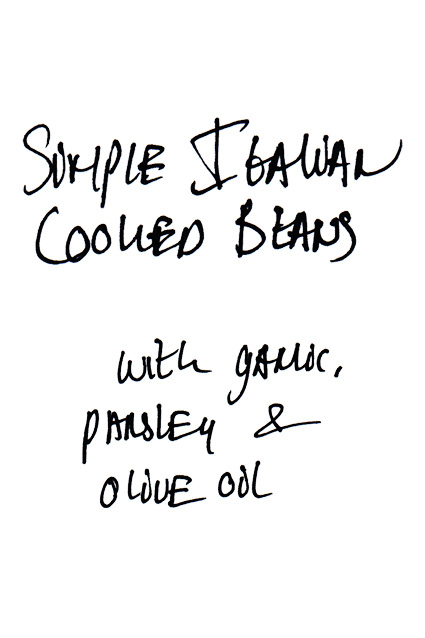 SIMPLE ITALIAN
COOKED BEANS
with GARLIC,
PARSLEY &
OLIVE OIL